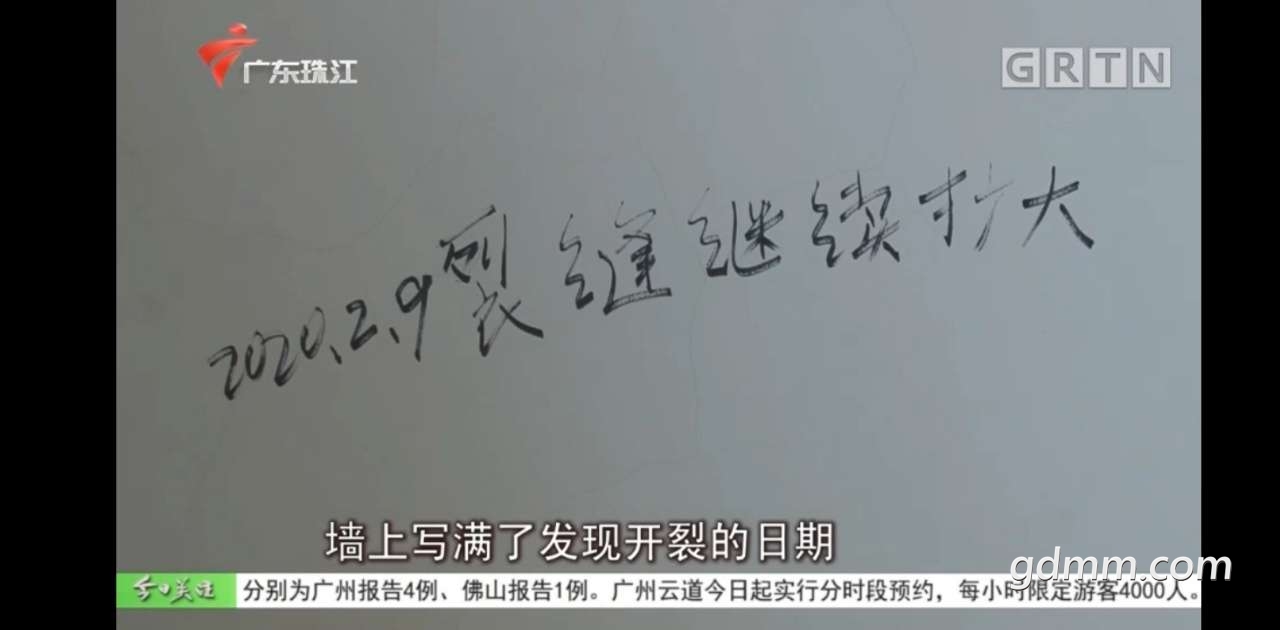 广东珠江
GRTN
2020.2.9裂缝继续扩大
墙上写满了发现开裂的日期
gdmm.com
今日关注
分别为广州报告4例、佛山报告1例。广州云道今日起实行分时段预约，每小时限定游客4000人。